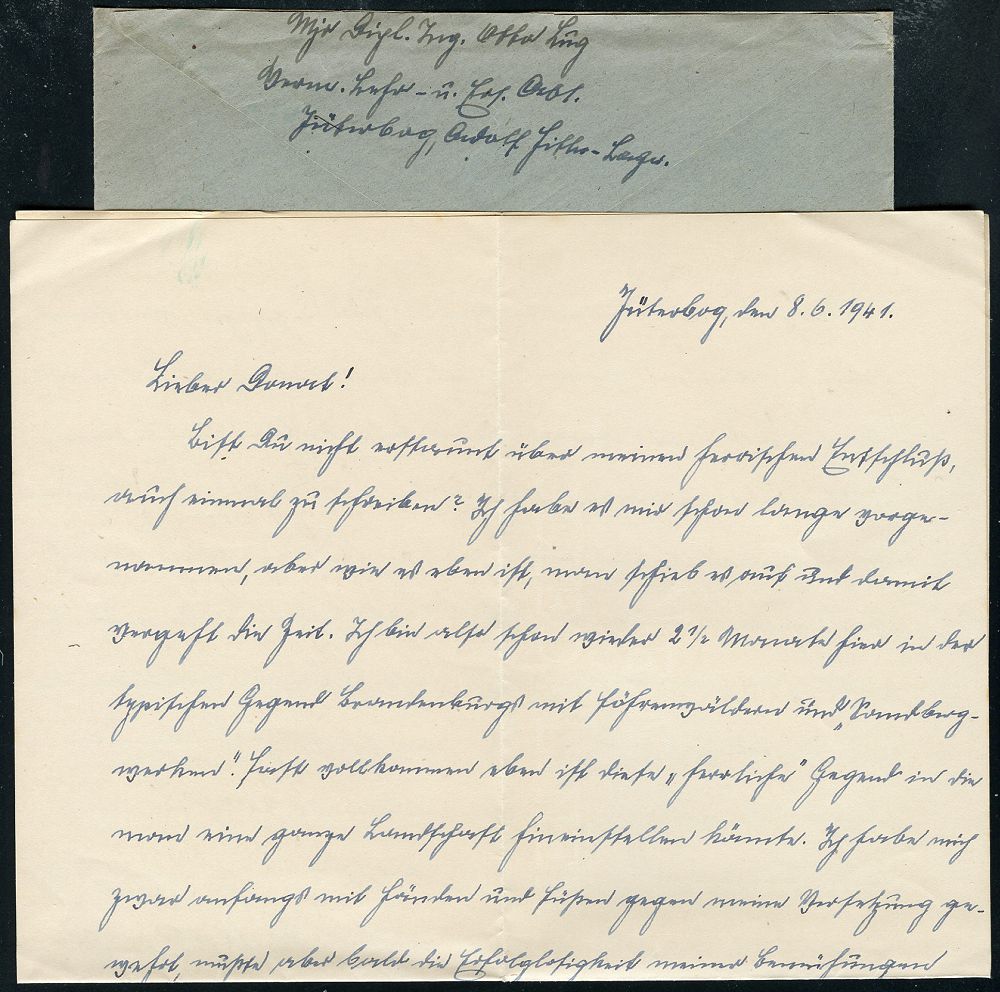 Mjr Dipl. Ing. Otto Lug
Verm. Lehr- u. Ers. Abt.
Jüterbog, Adolf Hitler-Lager.
Jüterbog, den 8.6.1941.
Lieber Donat!
Bist Du nicht erstaunt über meinen heroischen Entschluß,
auch einmal zu schreiben? Ich habe es mir schon lange vorge-
nommen, aber wie es eben ist, man schieb es auf und damit
vergeht die Zeit. Ich bin also schon wieder 2½ Monate hier in der
typischen Gegend Brandenburgs mit Föhrenwäldern und „Sandberg-
werken“. Fast vollkommen eben ist diese „herrliche“ Gegend in die
man eine ganze Landschaft hineinstellen könnte. Ich habe mich
zwar anfangs mit Händen und Füßen gegen meine Versetzung ge-
wehrt, mußte aber bald die Erfolglosigkeit meiner Bemühungen